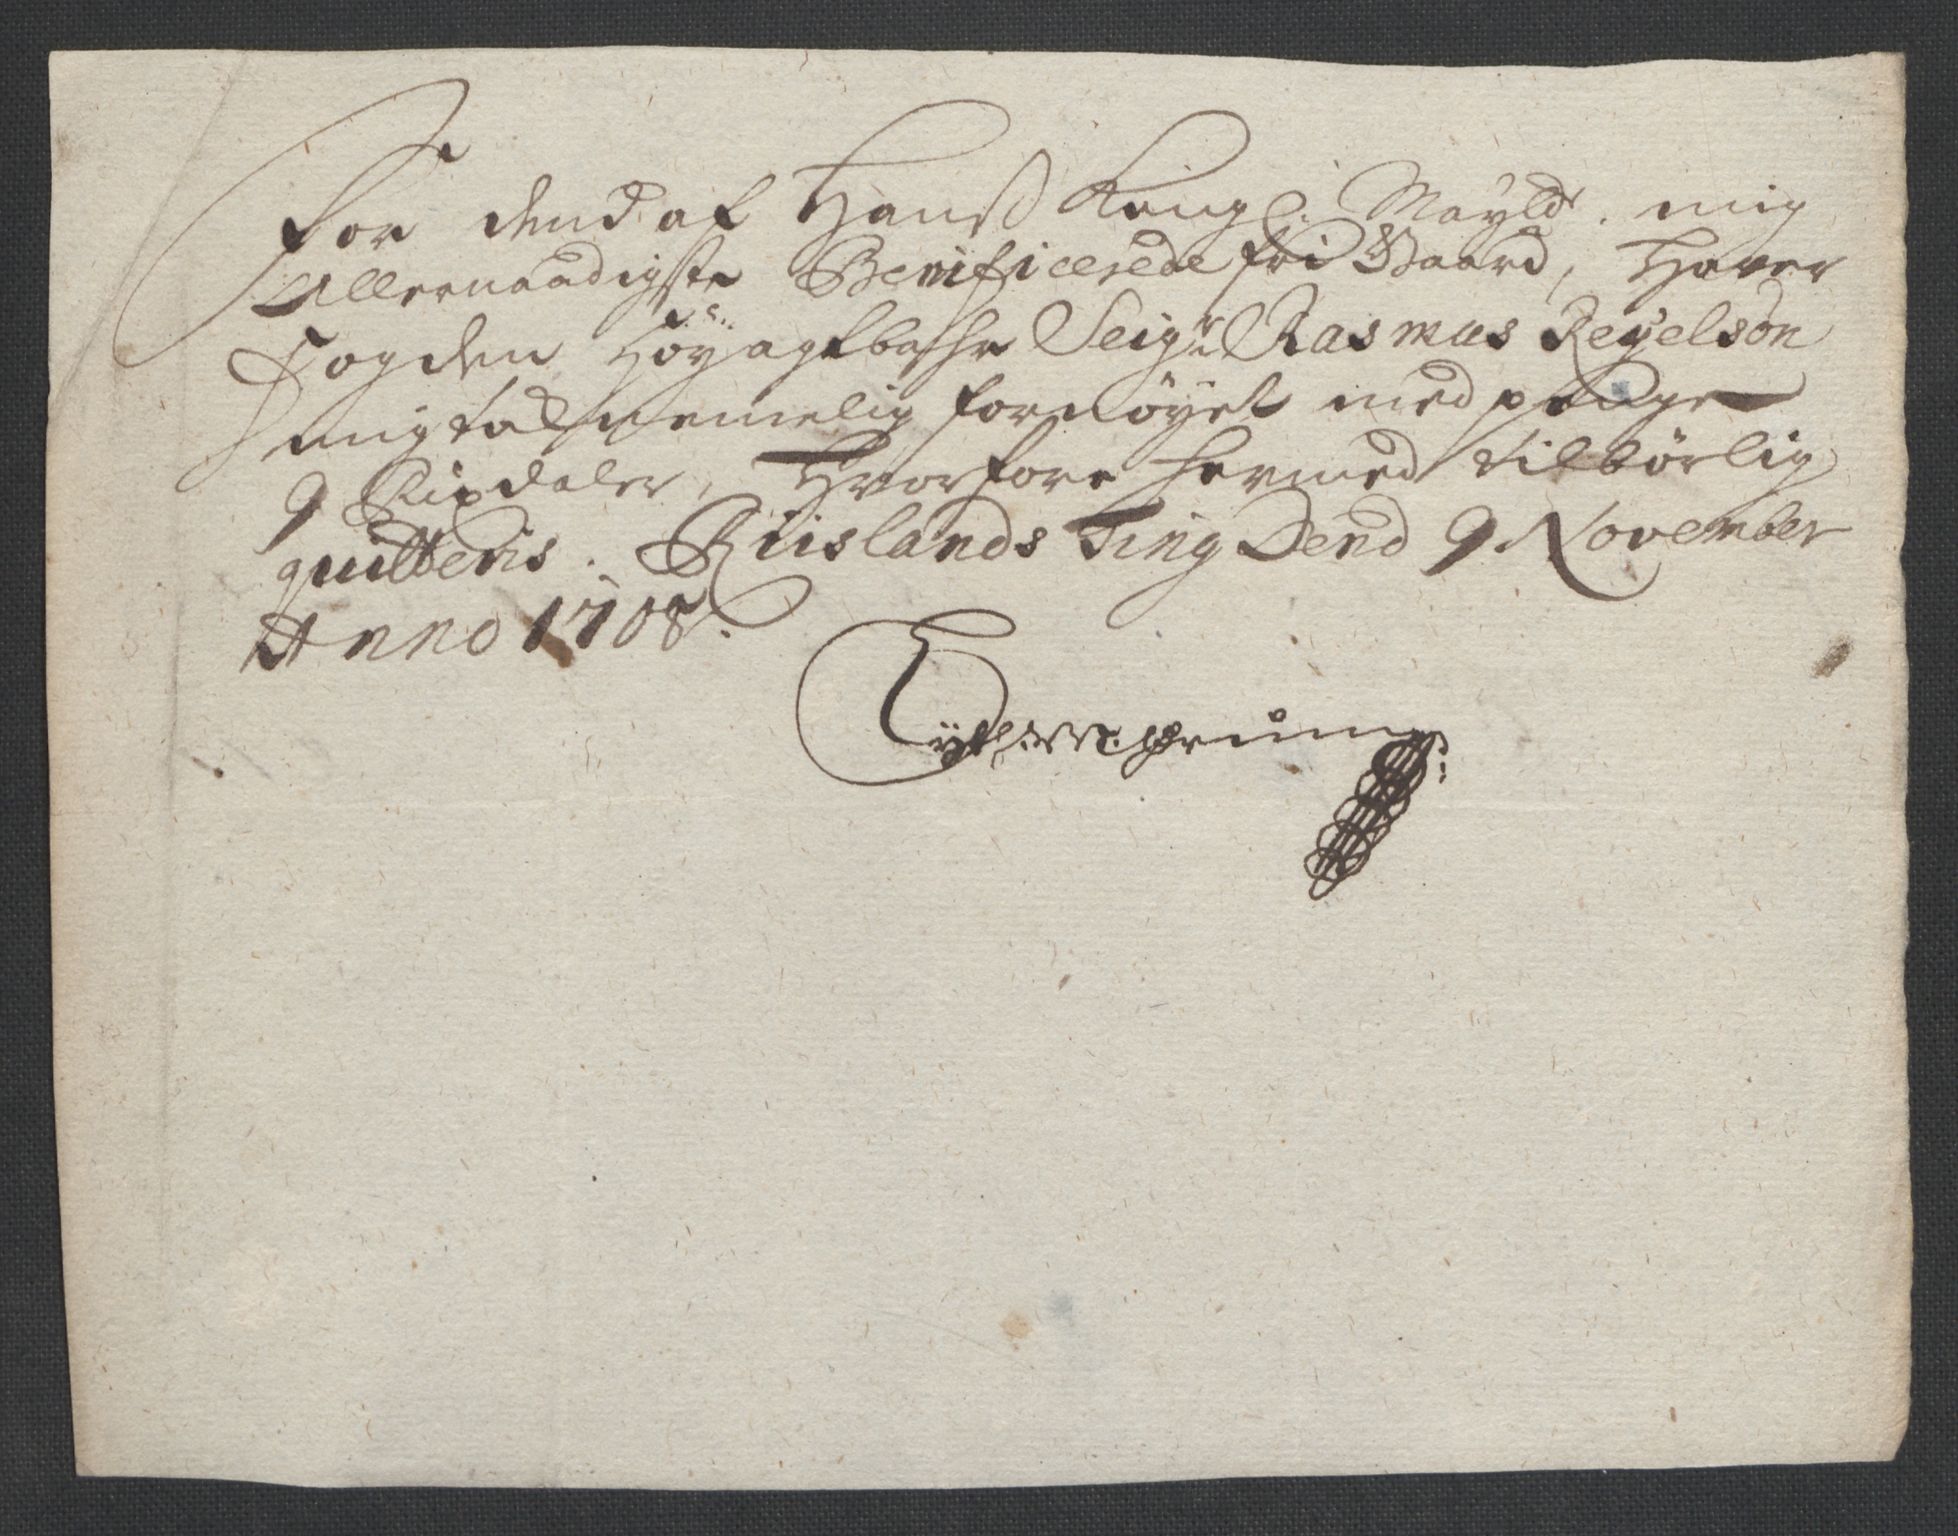 For dend af Hanß Kongl: Mayłds. mig
Allernaadigste Benificerede fri Gaard, Haver
Fogden Höyagtbahre Seigr Rasmus Regelsön
mig tal nemelig fornöyet med penge
9 Rixdaler, Hvorfore hermed tilbörlig
quitteris. Riislands Ting Dend 9 November
Anno 1708.